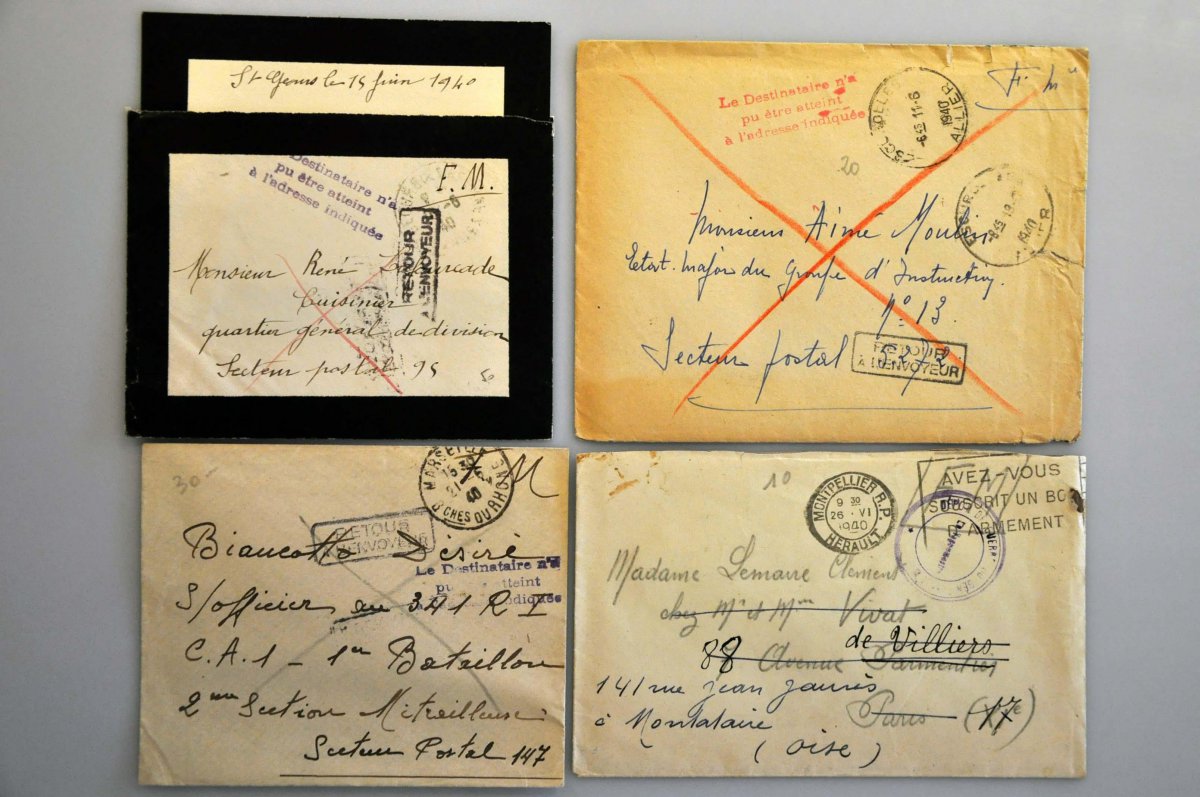 St Geours le 15 Juin 1940
Destinataire n'a
pu être atteint
à l'adresse indiquée
F. M.
RETOUR
A L'ENVOYEUR
Monsieur René
Cuisinier
quartier général de division
Secteur postal 95
50
Le Destinataire n'a
pu être atteint
à l'adresse indiquée
F. M
ALLIER
-8 45 11-6
1940
20
1940
Monsieur Aimé Moulin
Etat-major du Groupe d'Instruction
N° 13
Secteur postal 3272
RETOUR
À L'ENVOYEUR
30-
MARSEILLE
15 30
40
B CHES DU RHONE
M
RETOUR
A L'ENVOYEUR
Biancotto Désiré
Le Destinataire n'a
pu être atteint
indiquée
S/officier au 341 R I
C.A.1 - 1er Bataillon
2me Section Mitrailleuse
Secteur Postal 147
10
MONTPELLIER R.P.
9 30
26 · VI
1940
HERAULT
AVEZ-VOUS
SOUSCRIT UN BON
D'ARMEMENT
Madame Lemaire Clement
chez Mr et Mme Vivat
de Villiers
88 Avenue Parmentier
141 rue Jean Jaurès
à Montataire Paris
(Oise)